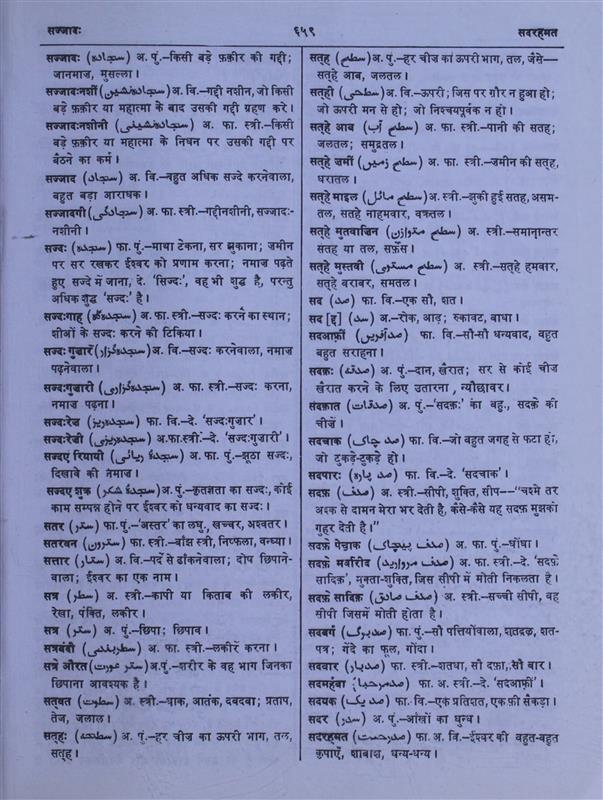 सज्जादः
६५९
सदरहमत
सज्जादः (سجاده) अ. पुं.-किसी बड़े फ़क़ीर की गद्दी;
जानमाज़, मुसल्ला।
सज्जादःनशीं (سجاده نشین) अ. फा. वि.-गद्दी नशीन, जो किसी
बड़े फ़क़ीर या महात्मा के बाद उसकी गद्दी ग्रहण करे।
सज्जादःनशीनी (سجاده نشینی) अ. फा. स्त्री.-किसी
बड़े फ़क़ीर या महात्मा के निधन पर उसकी गद्दी पर
बैठने का कर्म।
सज्जाद (سجاد) अ. वि.-बहुत अधिक सज्दे करनेवाला,
बहुत बड़ा आराधक।
सज्जादगी (سجادگی) अ. फा. स्त्री.-गद्दीनशीनी, सज्जादः-
नशीनी।
सज्दः (سجده) फा. पुं.-माथा टेकना, सर झुकाना; ज़मीन
पर सर रखकर ईश्वर को प्रणाम करना; नमाज़ पढ़ते
हुए सज्दे में जाना, दे. 'सिज्दः', वह भी शुद्ध है, परन्तु
अधिक शुद्ध 'सज्दः' है।
सज्दःगाह (سجده گاه) अ. फा. स्त्री.-सज्दः करने का स्थान;
शीओं के सज्दः करने की टिकिया।
सज्दःगुज़ार (سجده گزار) अ. वि.-सज्दः करनेवाला, नमाज़
पढ़नेवाला।
सज्दःगुज़ारी (سجده گزاری) अ. फा. स्त्री.-सज्दः करना,
नमाज़ पढ़ना।
सज्दःरेज़ (سجده ریز) फा. वि.-दे. 'सज्दःगुज़ार'।
सज्दःरेज़ी (سجده ریزی) अ.फा.स्त्री.-दे. 'सज्दःगुज़ारी'।
सज्दए रियायी (سجدۂ ریائی) अ. फा. पुं.-झूठा सज्दः,
दिखावे की नमाज़।
सज्दए शुक्र (سجدۂ شکر) अ. पुं.-कृतज्ञता का सज्दः, कोई
काम सम्पन्न होने पर ईश्वर को धन्यवाद का सज्दः।
सतर (ستر) फा. पुं.-'अस्तर' का लघु., खच्चर, अश्वतर।
सतरवन (سترون) फा. स्त्री.-बांझ स्त्री, निष्फला, वन्ध्या।
सत्तार (ستار) अ. वि.-पर्दे से ढाँकनेवाला; दोष छिपाने-
वाला; ईश्वर का एक नाम।
सत्र (سطر) अ. स्त्री.-कापी या किताब की लकीर,
रेखा, पंक्ति, लकीर।
सत्र (ستر) अ. पुं.-छिपा; छिपाव।
सत्रबंदी (سطربندی) अ. फा. स्त्री.-लकीरें करना।
सत्रे औरत (ستر عورت) अ.पुं.-शरीर के वह भाग जिनका
छिपाना आवश्यक है।
सत्वत (سطوت) अ. स्त्री.-धाक, आतंक, दबदबा; प्रताप,
तेज, जलाल।
सत्हः (سطحه) अ. पुं.-हर चीज़ का ऊपरी भाग, तल,
सत्ह।
सत्ह (سطح) अ. पुं.-हर चीज़ का ऊपरी भाग, तल, जैसे—
सत्हे आब, जलतल।
सत्ही (سطحی) अ. वि.-ऊपरी; जिस पर ग़ौर न हुआ हो;
जो ऊपरी मन से हो; जो निश्चयपूर्वक न हो।
सत्हे आब (سطح آب) अ. फा. स्त्री.-पानी की सतह;
जलतल; समुद्रतल।
सत्हे ज़मीं (سطح زمین) अ. फा. स्त्री.-ज़मीन की सत्ह,
धरातल।
सत्हे माइल (سطح مائل) अ. स्त्री.-झुकी हुई सतह, असम-
तल, सतहे नाहमवार, वक्रतल।
सत्हे मुतवाज़िन (سطح متوازن) अ. स्त्री.-समानान्तर
सतह या तल, सर्फ़ेस।
सत्हे मुस्तवी (سطح مستوی) अ. स्त्री.-सत्हे हमवार,
सत्हे बराबर, समतल।
सद (صد) फा. वि.-एक सौ, शत।
सद [द्द] (سد) अ.-रोक, आड़; रुकावट, बाधा।
सदआफ़्रीं (صد آفرین) फा. वि.-सौ-सौ धन्यवाद, बहुत
बहुत सराहना।
सदक़ः (صدقه) अ. पुं.-दान, ख़ैरात; सर से कोई चीज़
ख़ैरात करने के लिए उतारना, न्यौछावर।
सदक़ात (صدقات) अ. पुं.-'सदक़ः' का बहु., सदक़े की
चीज़ें।
सदचाक (صد چاک) फा. वि.-जो बहुत जगह से फटा हो,
जो टुकड़े-टुकड़े हो।
सदपारः (صد پاره) फा. वि.-दे. 'सदचाक'।
सदफ़ (صدف) अ. स्त्री.-सीपी, शुक्ति, सीप—"चश्मे तर
अश्क से दामन मेरा भर देती है, कैसे-कैसे यह सदफ़ मुझको
गुहर देती है।"
सदफ़े पेचाक (صدف پیچاک) अ. फा. पुं.-घोंघा।
सदफ़े मर्वारीद (صدف مروارید) अ. फा. स्त्री.-दे. 'सदफ़े
सादिक़', मुक्ता-शुक्ति, जिस सीपी में मोती निकलता है।
सदफ़े सादिक़ (صدف صادق) अ. स्त्री.-सच्ची सीपी, वह
सीपी जिसमें मोती होता है।
सदबर्ग (صدبرگ) फा. पुं.-सौ पत्तियोंवाला, शतदल, शत-
पत्र; गेंदे का फूल, गेंदा।
सदबार (صدبار) फा. स्त्री.-शतधा, सौ दफ़ा, सौ बार।
सदमर्हबा (صد مرحبا) फा. अ. स्त्री.-दे. 'सदआफ़्रीं'।
सदयक (صد یک) फा. वि.-एक प्रतिशत, एक फ़ी सैकड़ा।
सदर (سدر) अ. पुं.-आंखों का धुन्ध।
सदरहमत (صدرحمت) फा. अ. वि.-ईश्वर की बहुत-बहुत
कृपाएँ, शाबाश, धन्य-धन्य।